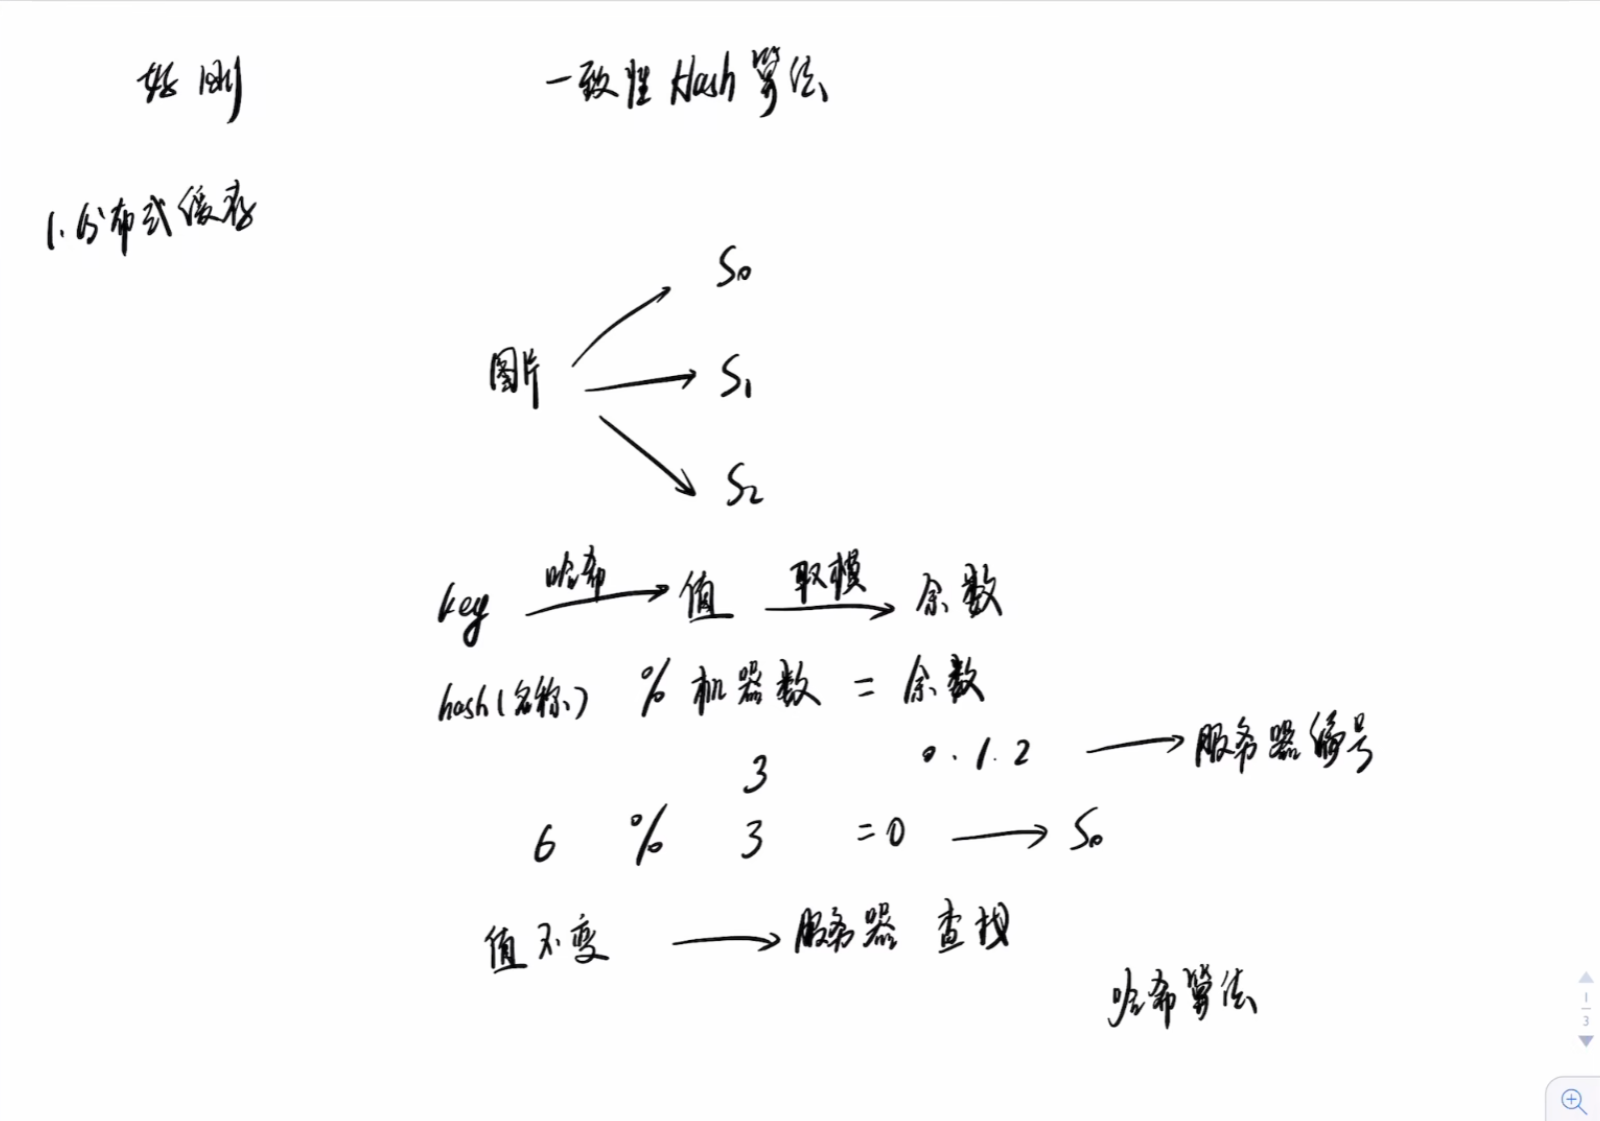 一致性Hash算法
1.分布式缓存
S0
图片
S1
S2
key 哈希 值 取模 余数
hash(名称) % 机器数 = 余数
3 0.1.2 服务器编号
6 % 3 =0 S0
值不变 服务器 查找
哈希算法
1
3